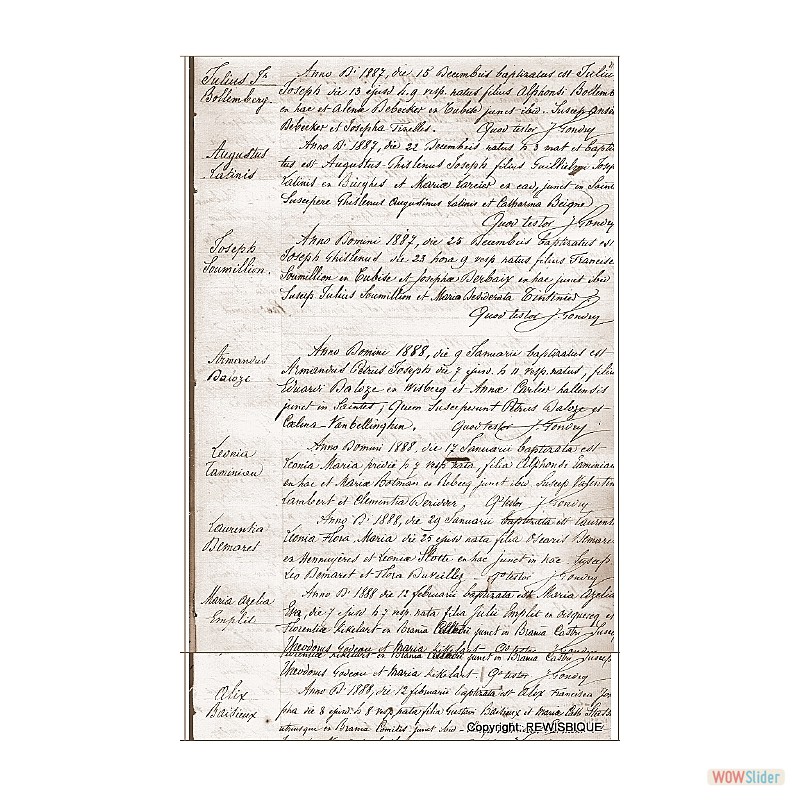 Julius Jh
Bollemberg.
Anno Di 1887, die 15 Decembris baptizatus est Juliu
Joseph die 13 ejusd h. 9 vesp. natus filius Alphonsi Bollemb
en hac et Alenæ Bebecker en Tubise junct ibid. Suscep
Bebecker et Josepha Tirelles. Quod testor J. Gondry
Augustus
Latinis
Anno Di 1887, die 22 Decembris natus h 3 mat et baptiza
tus est Augustus Ghislenus Joseph filius Guillielmi Josep
Latinis en Bierghes et Mariæ Larcier en ead, junct in Saint
Suscepere Ghislenus Augustinus Latinis et Catharina Beigne
Quod testor J. Gondry
Joseph
Soumillion.
Anno Domini 1887, die 25 Decembris baptizatus est
Joseph Ghislenus die 23 hora 9 vesp natus filius Francisc
Soumillion en Tubise et Josephæ Berbaix en hac junct ibid
Suscep. Julius Soumillion et Maria Desiderata Tintinier
Quod testor J. Gondry
Armandus
Daloze
Anno Domini 1888, die 9 Januarii baptizatus est
Armandus Petrus Joseph die 7 ejusd. h 11 vesp. natus, filiu
Eduardi Daloze en Wisbecq et Annæ Carlier hallensis
junct in Saintes, Quem Susceperunt Petrus Daloze et
Cælina Vanbellinghen. Quod testor J. Gondry
Leonia
Taminiau
Anno Domini 1888, die 17 Januarii baptizata est
Leonia Maria pridie h 7 vesp nata, filia Alphonsi Taminiau
en hac et Mariæ Botman en Rebecq junct ibid. Suscep Valentin
Lambert et Clementia Deridder, Qd testor J. Gondry
Laurentia
Demaret
Anno Di 1888, die 29 Januarii baptizata est Laurenti
Leonia Flora Maria die 25 ejusd nata filia Oscaris Demare
en Hennuyeres et Leoniæ Slotte en hac junct in hac. Suscep
Leo Demaret et Flora Duvieller Qd testor J. Gondry
Maria Azelia
Emplit
Anno Di 1888 die 12 februarii baptizata est Maria Azelia
Eva, die 7 ejusd h 7 vesp. nata filia Julii Emplit en Oisquercq et
Florentiæ Kikelart en Brania junct in Brania Castri, Susce
Theodorus Godeau et Maria Kikelart Qd testor J. Gondry
Florentiæ Kikelart en Brania junct in Brania Castri, Suscep
Theodorus Godeau et Maria Kikelart Qd testor J. Gondry
Alix
Baitieux
Anno Di 1888, die 12 februarii baptizata est Alix Francisca Jos
pha die 8 ejusd. h 8 vesp nata filia Gustavi Baitieux et Mariæ
utriusque en Brania Comitis junct ibid
Copyright: REWISBIQUE
WOWSlider